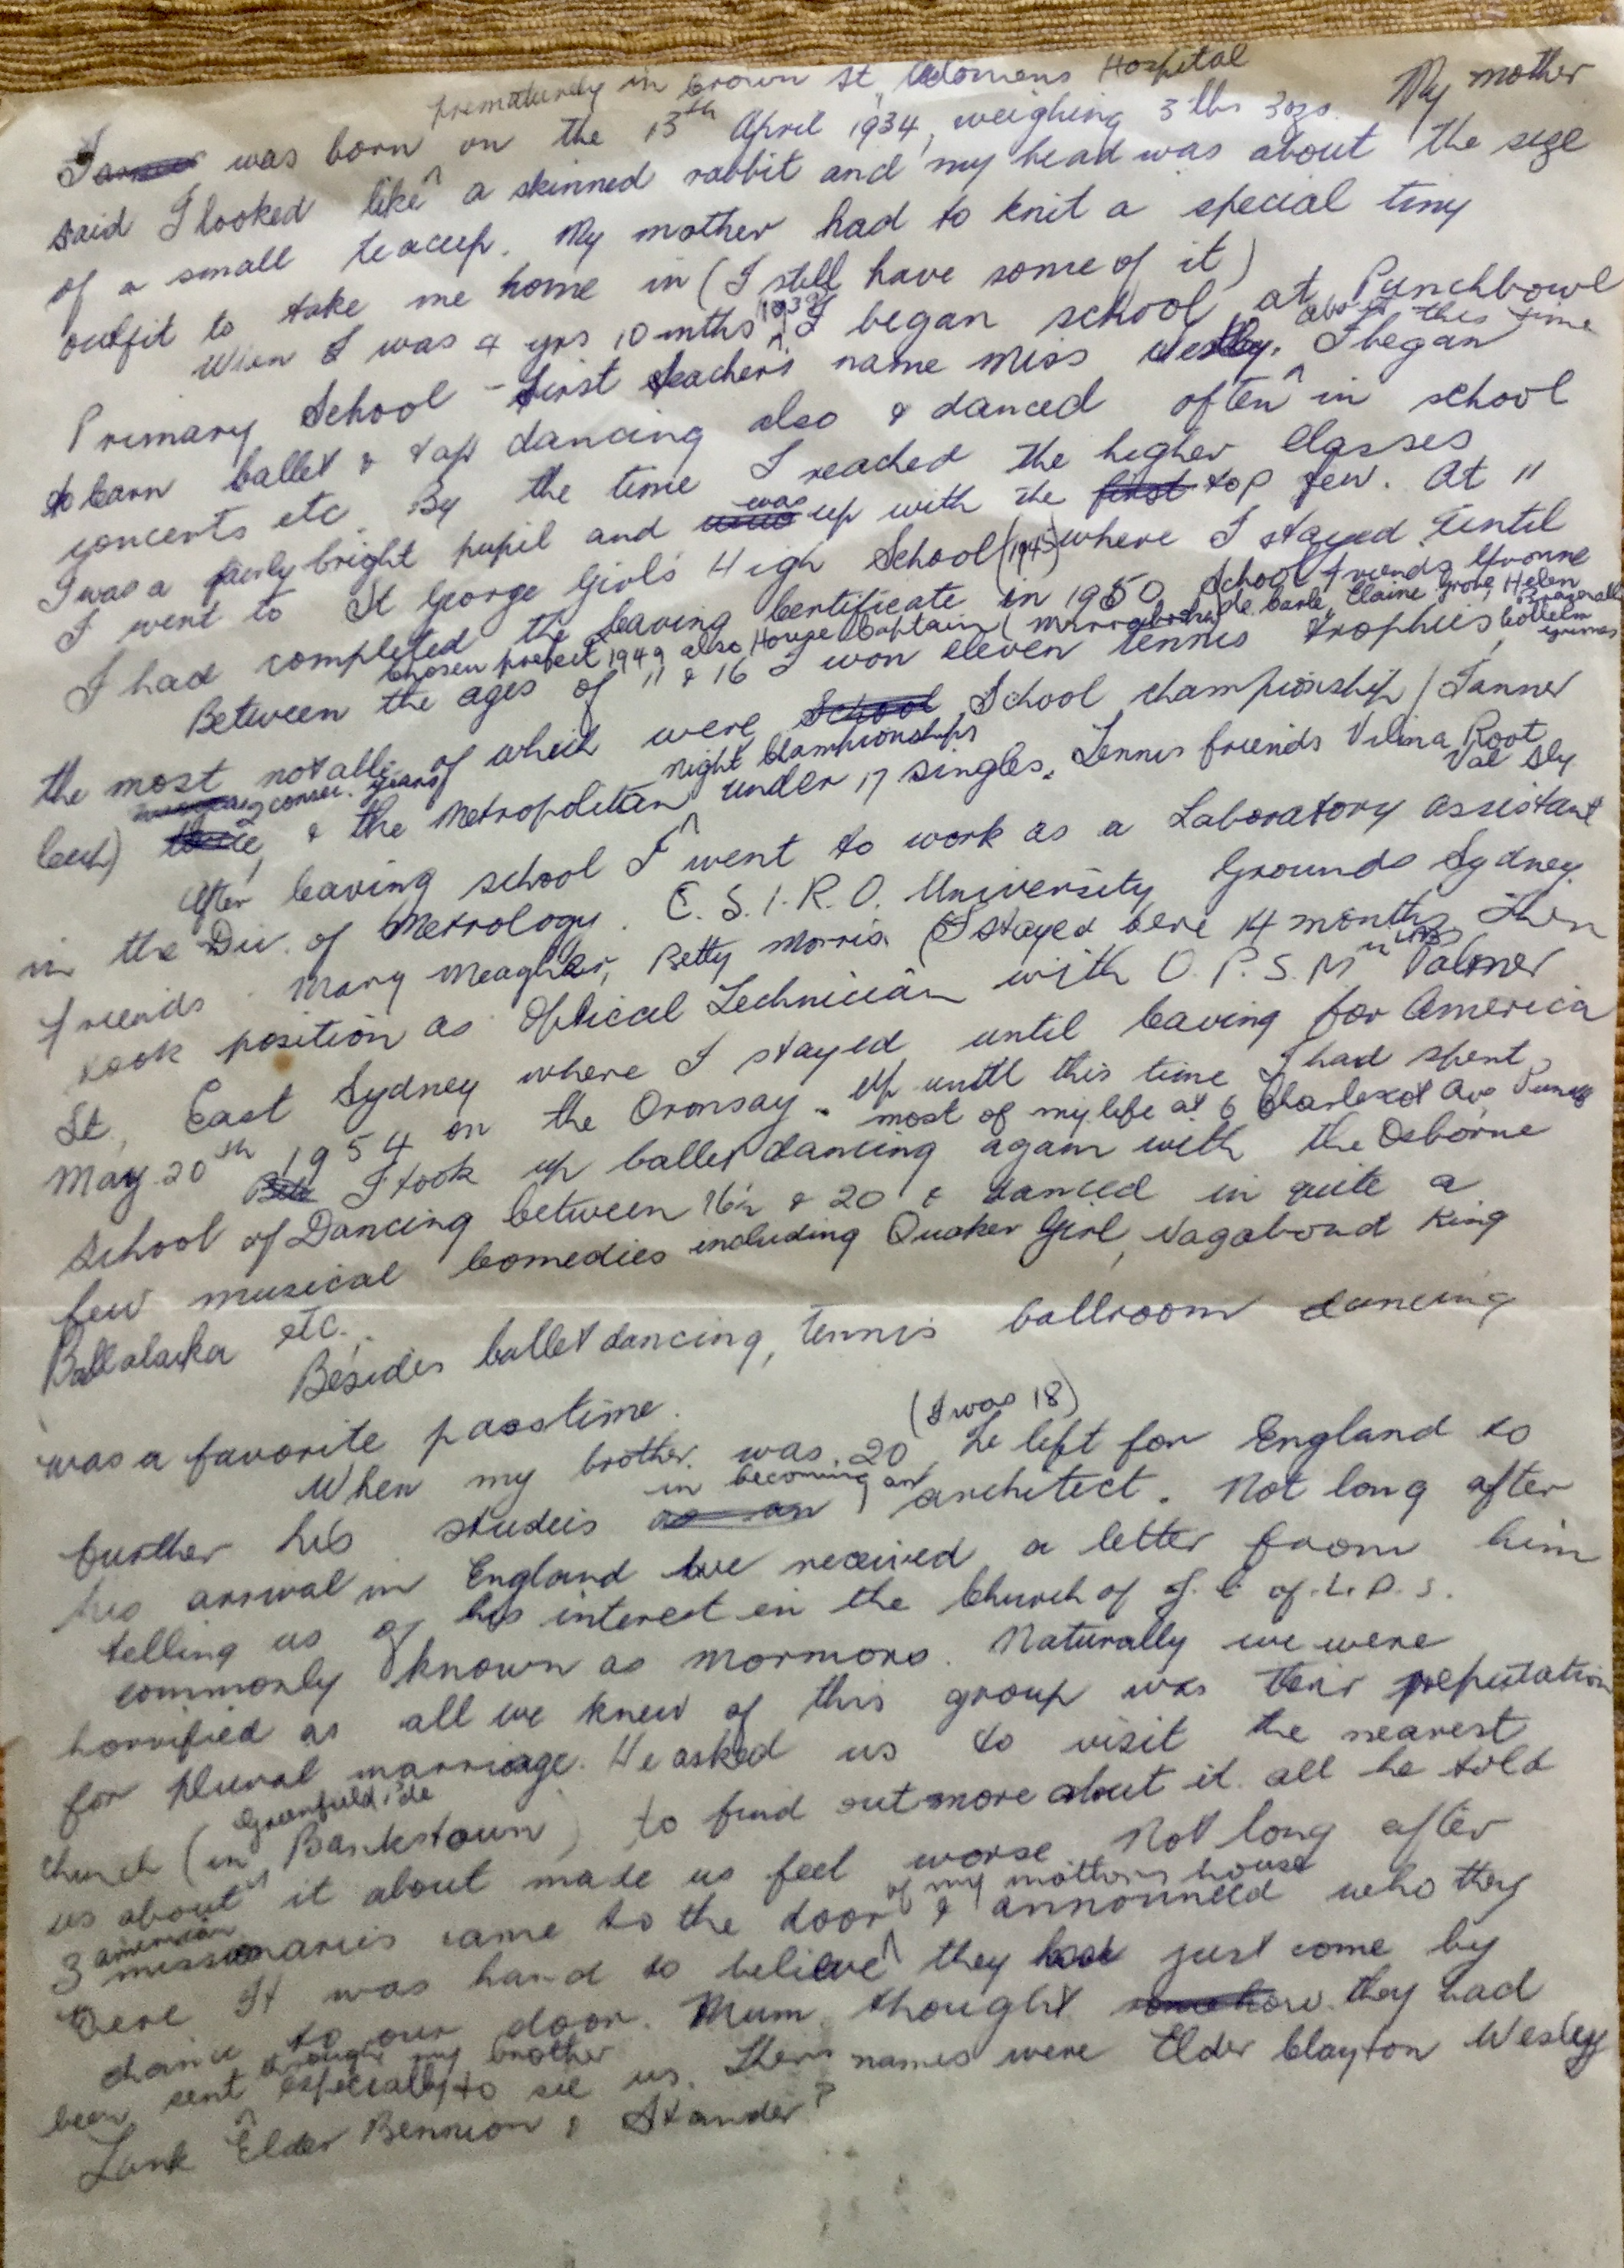 prematurely in Crown St, Womens Hospital
I was born on the 13th April 1934, weighing 3 lbs 3ozs. My mother
said I looked like a skinned rabbit and my head was about the size
of a small teacup. My mother had to knit a special tiny
outfit to take me home in (I still have some of it)
When I was 4 yrs 10 mths 1939 I began school at Punchbowl
about this time
Primary School - first teacher's name Miss Westby. I began
to learn ballet & tap dancing also & danced often in school
concerts etc. By the time I reached the higher classes
I was a fairly bright pupil and was up with the first top few. At 11
I went to St George Girls High School (1945) where I stayed until
I had completed the Leaving Certificate in 1950. School friends Yvonne
Chosen prefect 1949 also House Captain de Carle, Elaine Grove, Helen
Between the ages of 11 & 16 I won eleven tennis trophies,
the most notable of which were School School championship (Tanner
2 consec. years night Championships
Cup) twice, & the Metropolitan under 17 singles. Tennis friends Vilma Root
Val Sly
After leaving school I went to work as a Laboratory assistant
in the Div. of Metrology. C.S.I.R.O. University Grounds Sydney.
friends Mary Meagher, Betty Morris (I stayed here 14 months then
took position as Optical Technician with O.P.S.M in Palmer
St, East Sydney where I stayed until leaving for America
May 20th 1954 on the Oronsay. Up until this time I had spent
most of my life at 6 Charlescot Ave
I took up ballet dancing again with the Osborne
School of Dancing between 16½ & 20 & danced in quite a
few musical Comedies including Quaker Girl, Vagabond King
Ballalaika etc.
Besides ballet dancing, tennis ballroom dancing
was a favorite passtime.
(I was 18)
When my brother was 20, he left for England to
in becoming an
further his studeis as an architect. Not long after
his arrival in England we received a letter from him
telling us of his interest in the Church of J.C of L.D.S.
commonly known as Mormons. Naturally we were
horrified as all we knew of this group was their reputation
for plural marriage. He asked us to visit the nearest
Greenfield
church (in Bankstown) to find out more about it. all he told
us about it about made us feel worse. Not long after
american of my mothers house
3 missionaries came to the door & announced who they
were It was hard to believe they had just come by
chance to our door. Mum thought somehow they had
through my brother
been sent especially to see us. Their names were Elder Clayton Wesley
Lunk Elder Bennion & Stander?